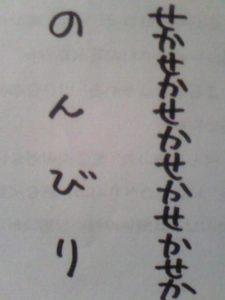 せかせかせかせかせかせか
のんびり